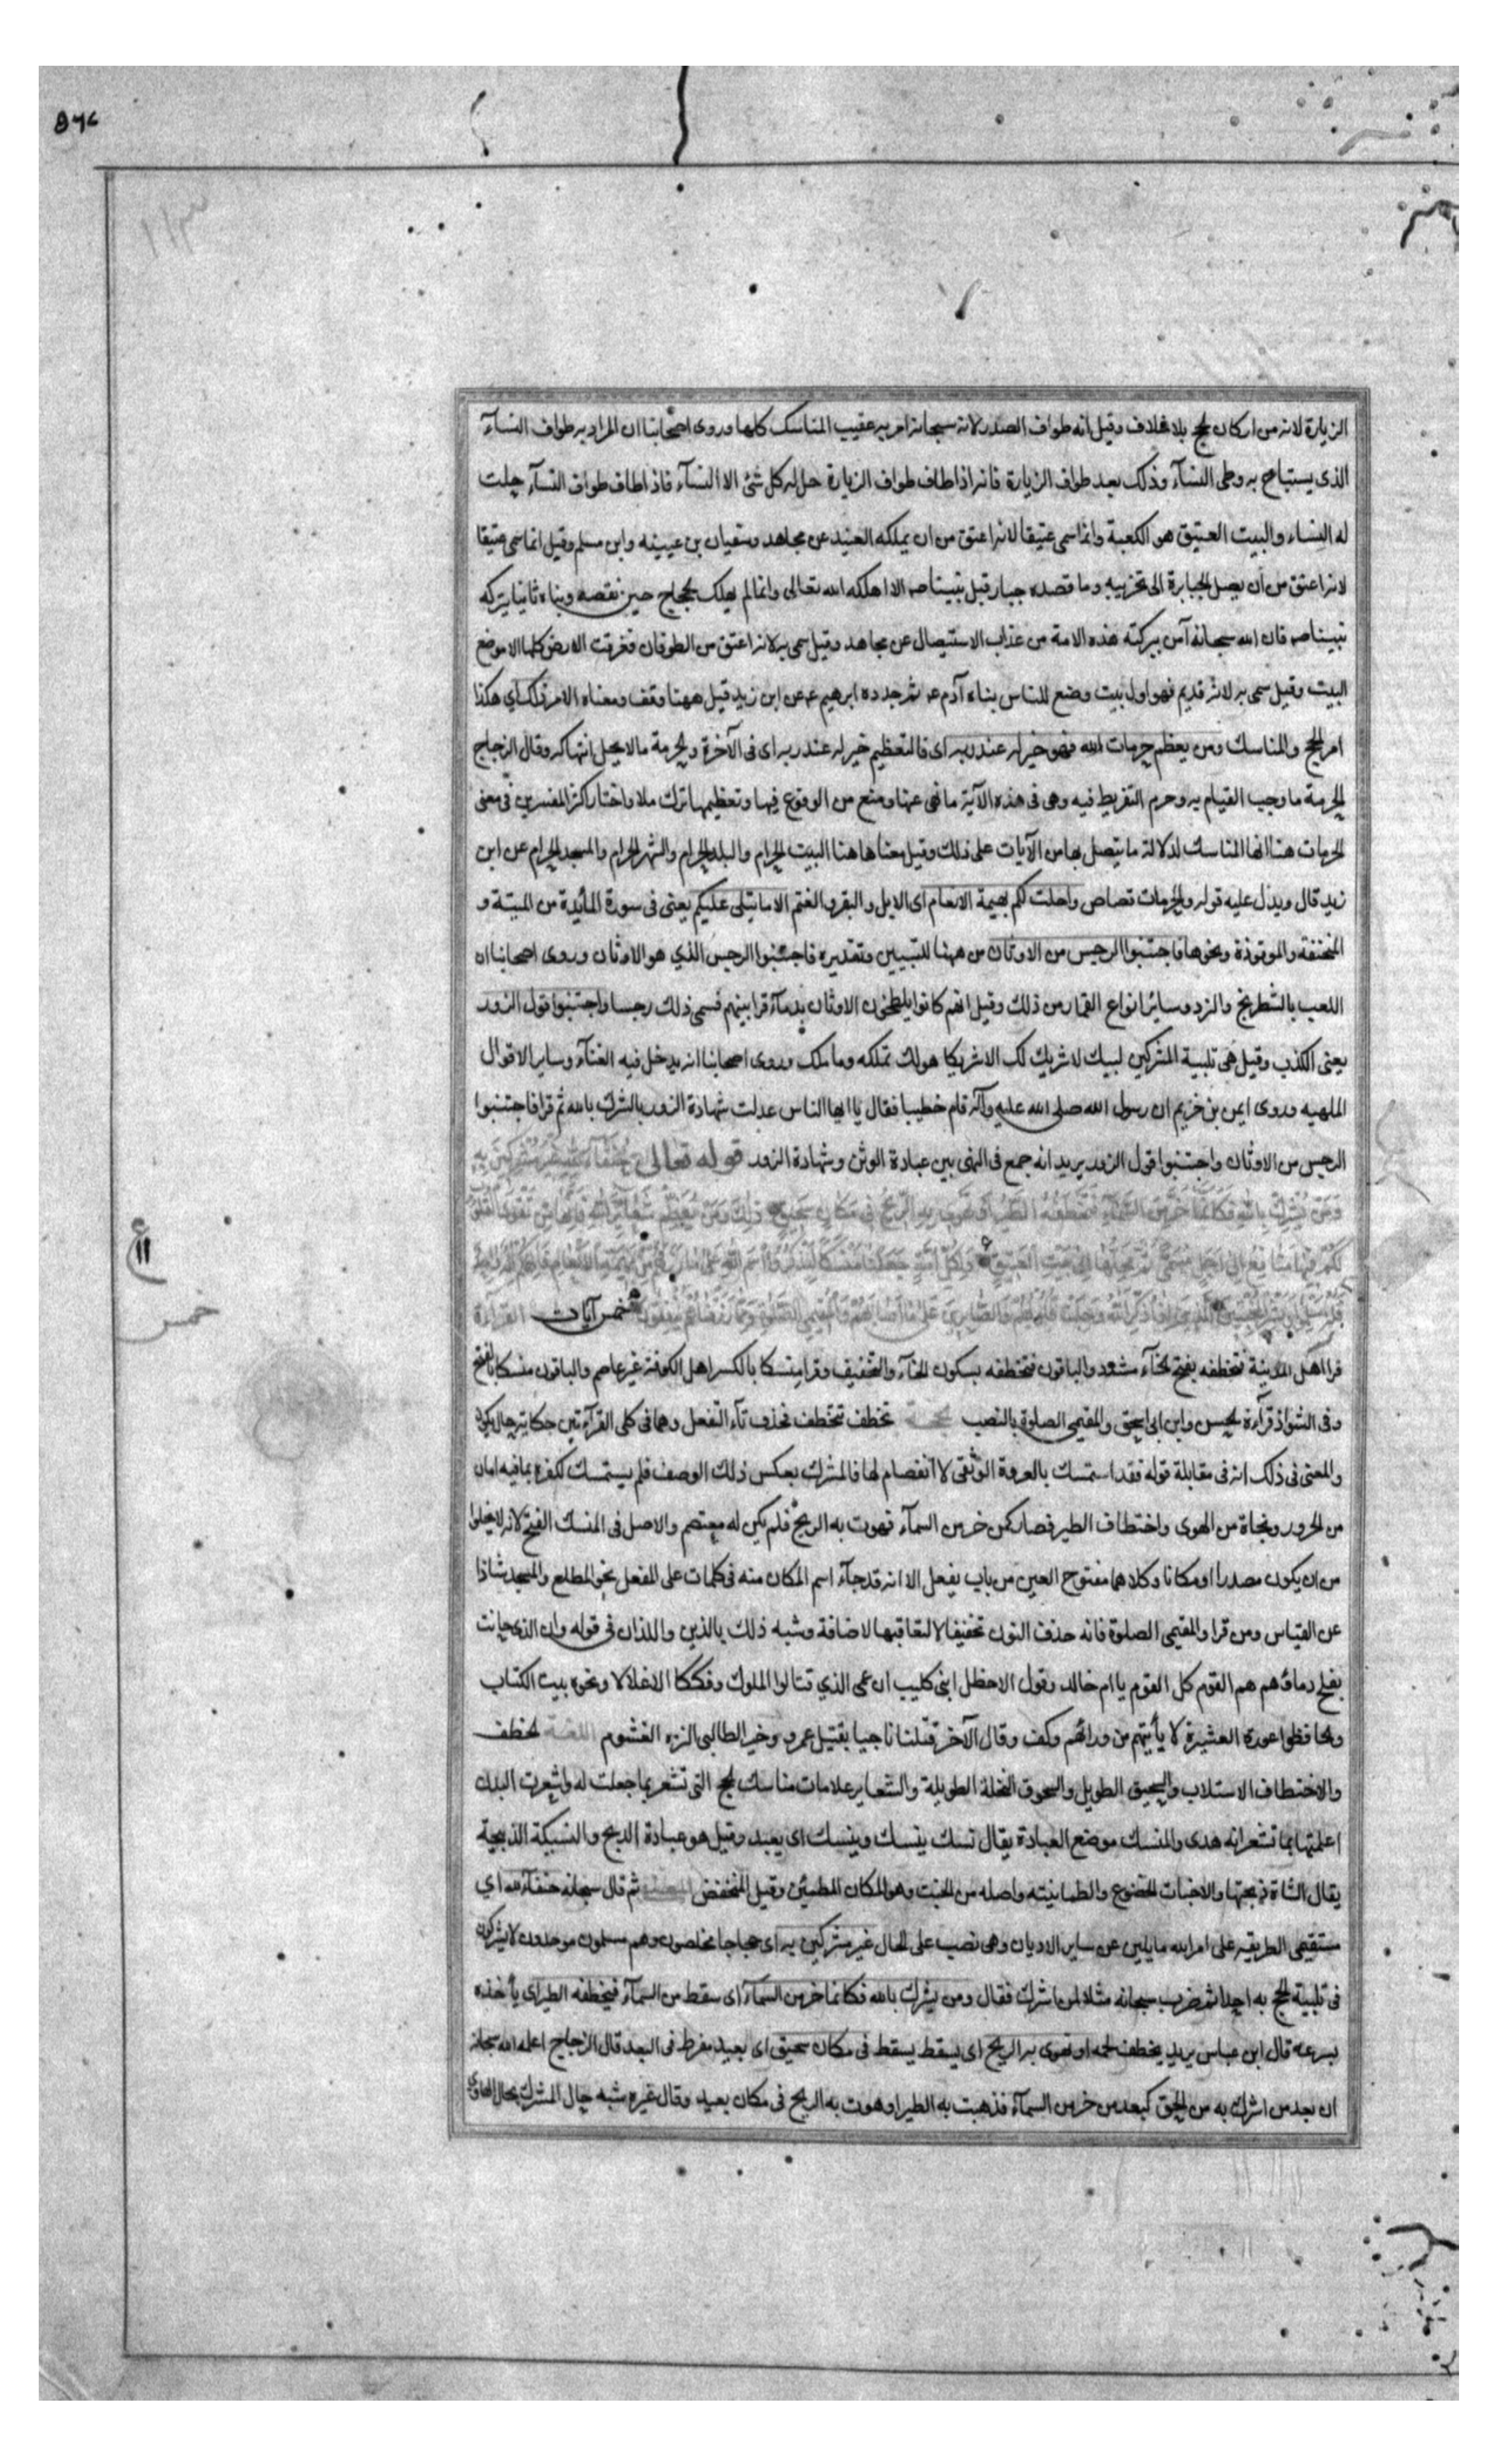 الزيارة لانه من اركان الحج بلا خلاف وقيل انه طواف الصدر لانه سبحانه امر به عقيب المناسك كلها وروى اصحابنا ان المراد به طواف النسآء
الذى يستباح به وطى النسآء وذلك بعد طواف الزيارة فانه اذا طاف طواف الزيارة حل له كل شئ الا النسآء فاذا طاف طواف النسآء حلت
له النساء والبيت العتيق هو الكعبة وانما سمى عتيقا لانه اعتق من ان يملكه العبيد عن مجاهد وسفيان بن عيينه وابن مسلم وقيل انما سمى عتيقا
لانه اعتق من ان يصل الجبابرة الى تخريبه وما قصده جبار قبل نبينا صه الا اهلكه الله تعالى وانما لم يهلك الحجاج حين نقضه وبناه ثانيا ببركه
نبينا صه فان الله سبحانه آمن ببركته هذه الامة من عذاب الاستيصال عن مجاهد وقيل سمى به لانه اعتق من الطوفان فغرقت الارض كلها الا موضع
البيت وقيل سمى به لانه قديم فهو اول بيت وضع للناس بناه آدم عم ثم جدده ابرهيم عم عن ابن زيد قيل ههنا وقف ومعناه الامر ذلك اي هكذا
امر الحج والمناسك ومن يعظم حرمات الله فهو خير له عند ربه اى فالتعظيم خير له عند ربه اى فى الآخرة والحرمة ما لا يحل انتهاكه وقال الزجاج
الحرمة ما وجب القيام به وحرم التفريط فيه وهى فى هذه الآية ما نهى عنها ومنع من الوقوع فيها وتعظيمها ترك ملا واختار اكثر المفسرين فى معنى
الحرمات هنا انها المناسك لدلالة ما يتصل بها من الآيات على ذلك وقيل معناها هنا البيت الحرام والبلد الحرام والشهر الحرام والمسجد الحرام عن ابن
زيد قال ويدل عليه قوله والحرمات قصاص واحلت لكم بهيمة الانعام اى الابل والبقر والغنم الا ما يتلى عليكم يعنى فى سورة المائدة من الميتة و
المنخنقة والموقوذة ونحوها فاجتنبوا الرجس من الاوثان من ههنا للتبيين وتقديره فاجتنبوا الرجس الذي هو الاوثان وروى اصحابنا ان
اللعب بالشطرنج والنرد وسائر انواع القمار من ذلك وقيل انهم كانوا يلطخون الاوثان بدمآء قرابينهم فسمى ذلك رجسا واجتنبوا قول الزور
يعنى الكذب وقيل هى تلبية المشركين لبيك لا شريك لك الا شريكا هو لك تملكه وما ملك وروى اصحابنا انه يدخل فيه الغنآء وساير الاقوال
الملهيه وروى ايمن بن خزيم ان رسول الله صلى الله عليه وآله قام خطيبا فقال يا ايها الناس عدلت شهادة الزور بالشرك بالله ثم قرا فاجتنبوا
الرجس من الاوثان واجتنبوا قول الزور يريد انه جمع فى النهى بين عبادة الوثن وشهادة الزور قوله تعالى حُنَفَآءَ لِلّٰهِ غَيْرَ مُشْرِكِينَ بِهِ
وَمَن يُشْرِكْ بِاللهِ فَكَاَنَّمَا خَرَّ مِنَ السَّمَآءِ فَتَخْطَفُهُ الطَّيْرُ اَوْ تَهْوِى بِهِ الرِّيحُ فِى مَكَانٍ سَحِيقٍ ذٰلِكَ وَمَنْ يُعَظِّمْ شَعَائِرَ اللهِ فَاِنَّهَا مِنْ تَقْوَى الْقُلُوبِ
لَكُمْ فِيهَا مَنَافِعُ اِلَى اَجَلٍ مُسَمًّى ثُمَّ مَحِلُّهَا اِلَى الْبَيْتِ الْعَتِيقِ وَلِكُلِّ اُمَّةٍ جَعَلْنَا مَنْسَكًا لِيَذْكُرُوا اسْمَ اللهِ عَلَى مَا رَزَقَهُمْ مِنْ بَهِيمَةِ الْاَنْعَامِ فَاِلٰهُكُمْ اِلٰهٌ وَاحِدٌ
فَلَهُ اَسْلِمُوا وَبَشِّرِ الْمُخْبِتِينَ الَّذِينَ اِذَا ذُكِرَ اللهُ وَجِلَتْ قُلُوبُهُمْ وَالصَّابِرِينَ عَلَى مَا اَصَابَهُمْ وَالْمُقِيمِى الصَّلٰوةِ وَمِمَّا رَزَقْنَاهُمْ يُنْفِقُونَ خمس آيات القرآءة
قرا اهل المدينة فتخطفه بفتح الخآء مشدد والباقون فتخطفه بسكون الخآء والتخفيف وقرا منسكا بالكسر اهل الكوفة غير عاصم والباقون منسكا بالفتح
وفى الشواذ قرآءة الحسن وابن ابى اسحق والمقيمى الصلوة بالنصب الحجة تخطف تتخطف فحذف تآء التفعل وهما فى كلى القرآءتين حكاية حال يكون
والمعنى فى ذلك انه فى مقابلة قوله فقد استمسك بالعروة الوثقى لا انفصام لها فالمشرك بعكس ذلك الوصف فلم يستمسك لكفره بما فيه امان
من الخرور ونجاة من الهوى واختطاف الطير فصار كمن خر من السمآء فهوت به الريح فلم يكن له معتصم والاصل فى المنسك الفتح لانه لا يخلوا
من ان يكون مصدرا او مكانا وكلاهما مفتوح العين من باب يفعل الا انه قد جآء اسم المكان منه فى كلمات على المفعل نحو المطلع والمسجد شاذا
عن القياس ومن قرا والمقيمى الصلوة فانه حذف النون تخفيفا لا لتعاقبها لاضافة وشبه ذلك بالذين واللذان فى قوله وان الذى حانت
بفلج دماؤهم هم القوم كل القوم يا ام خالد وقول الاخطل ابنى كليب ان عمى الذي قتالوا الملوك وفككا الاغلالا ونحوه بيت الكتاب
والحافظوا عورة العشيرة لا يأتيهم من ورائهم وكف وقال الآخر قتلنا ناجيا بقتيل عمرو وخير الطالبى الترة الغشوم اللغة الخطف
والاختطاف الاستلاب والسحيق الطويل والسحوق النخلة الطويلة والشعاير علامات مناسك الحج التى تشعر بما جعلت له واشعرت البدن
اعلمتها بما تشعر انه هدى والمنسك موضع العبادة يقال نسك ينسك وينسك اى يعبد وقيل هو عبادة الذبح والنسيكة الذبيحة
يقال الشاة ذبحتها والاخبات الخضوع والطمانينه واصله من الخبت وهو المكان المطمئن وقيل المنخفض المعنى ثم قال سبحانه حنفآء لله اي
مستقيمى الطريقه على امر الله مايلين عن ساير الاديان وهى نصب على الحال غير مشركين به اى حجاجا مخلصون وهم مسلمون موحدون لا يشركون
فى تلبية الحج به احدا ثم ضرب سبحانه مثلا لمن اشرك فقال ومن يشرك بالله فكانما خر من السمآء اى سقط من السمآء فتخطفه الطير اى يأخذه
بسرعه قال ابن عباس يريد يخطف لحمه او تهوى به الريح اى يسقط يسقط فى مكان سحيق اى بعيد مفرط فى البعد قال الزجاج اعلم الله سبحانه
ان بعد من اشرك به من الحق كبعد من خر من السمآء فذهبت به الطير او هوت به الريح فى مكان بعيد وقال غيره شبه حال المشرك بحال الهاوى
ع
١١
خمس